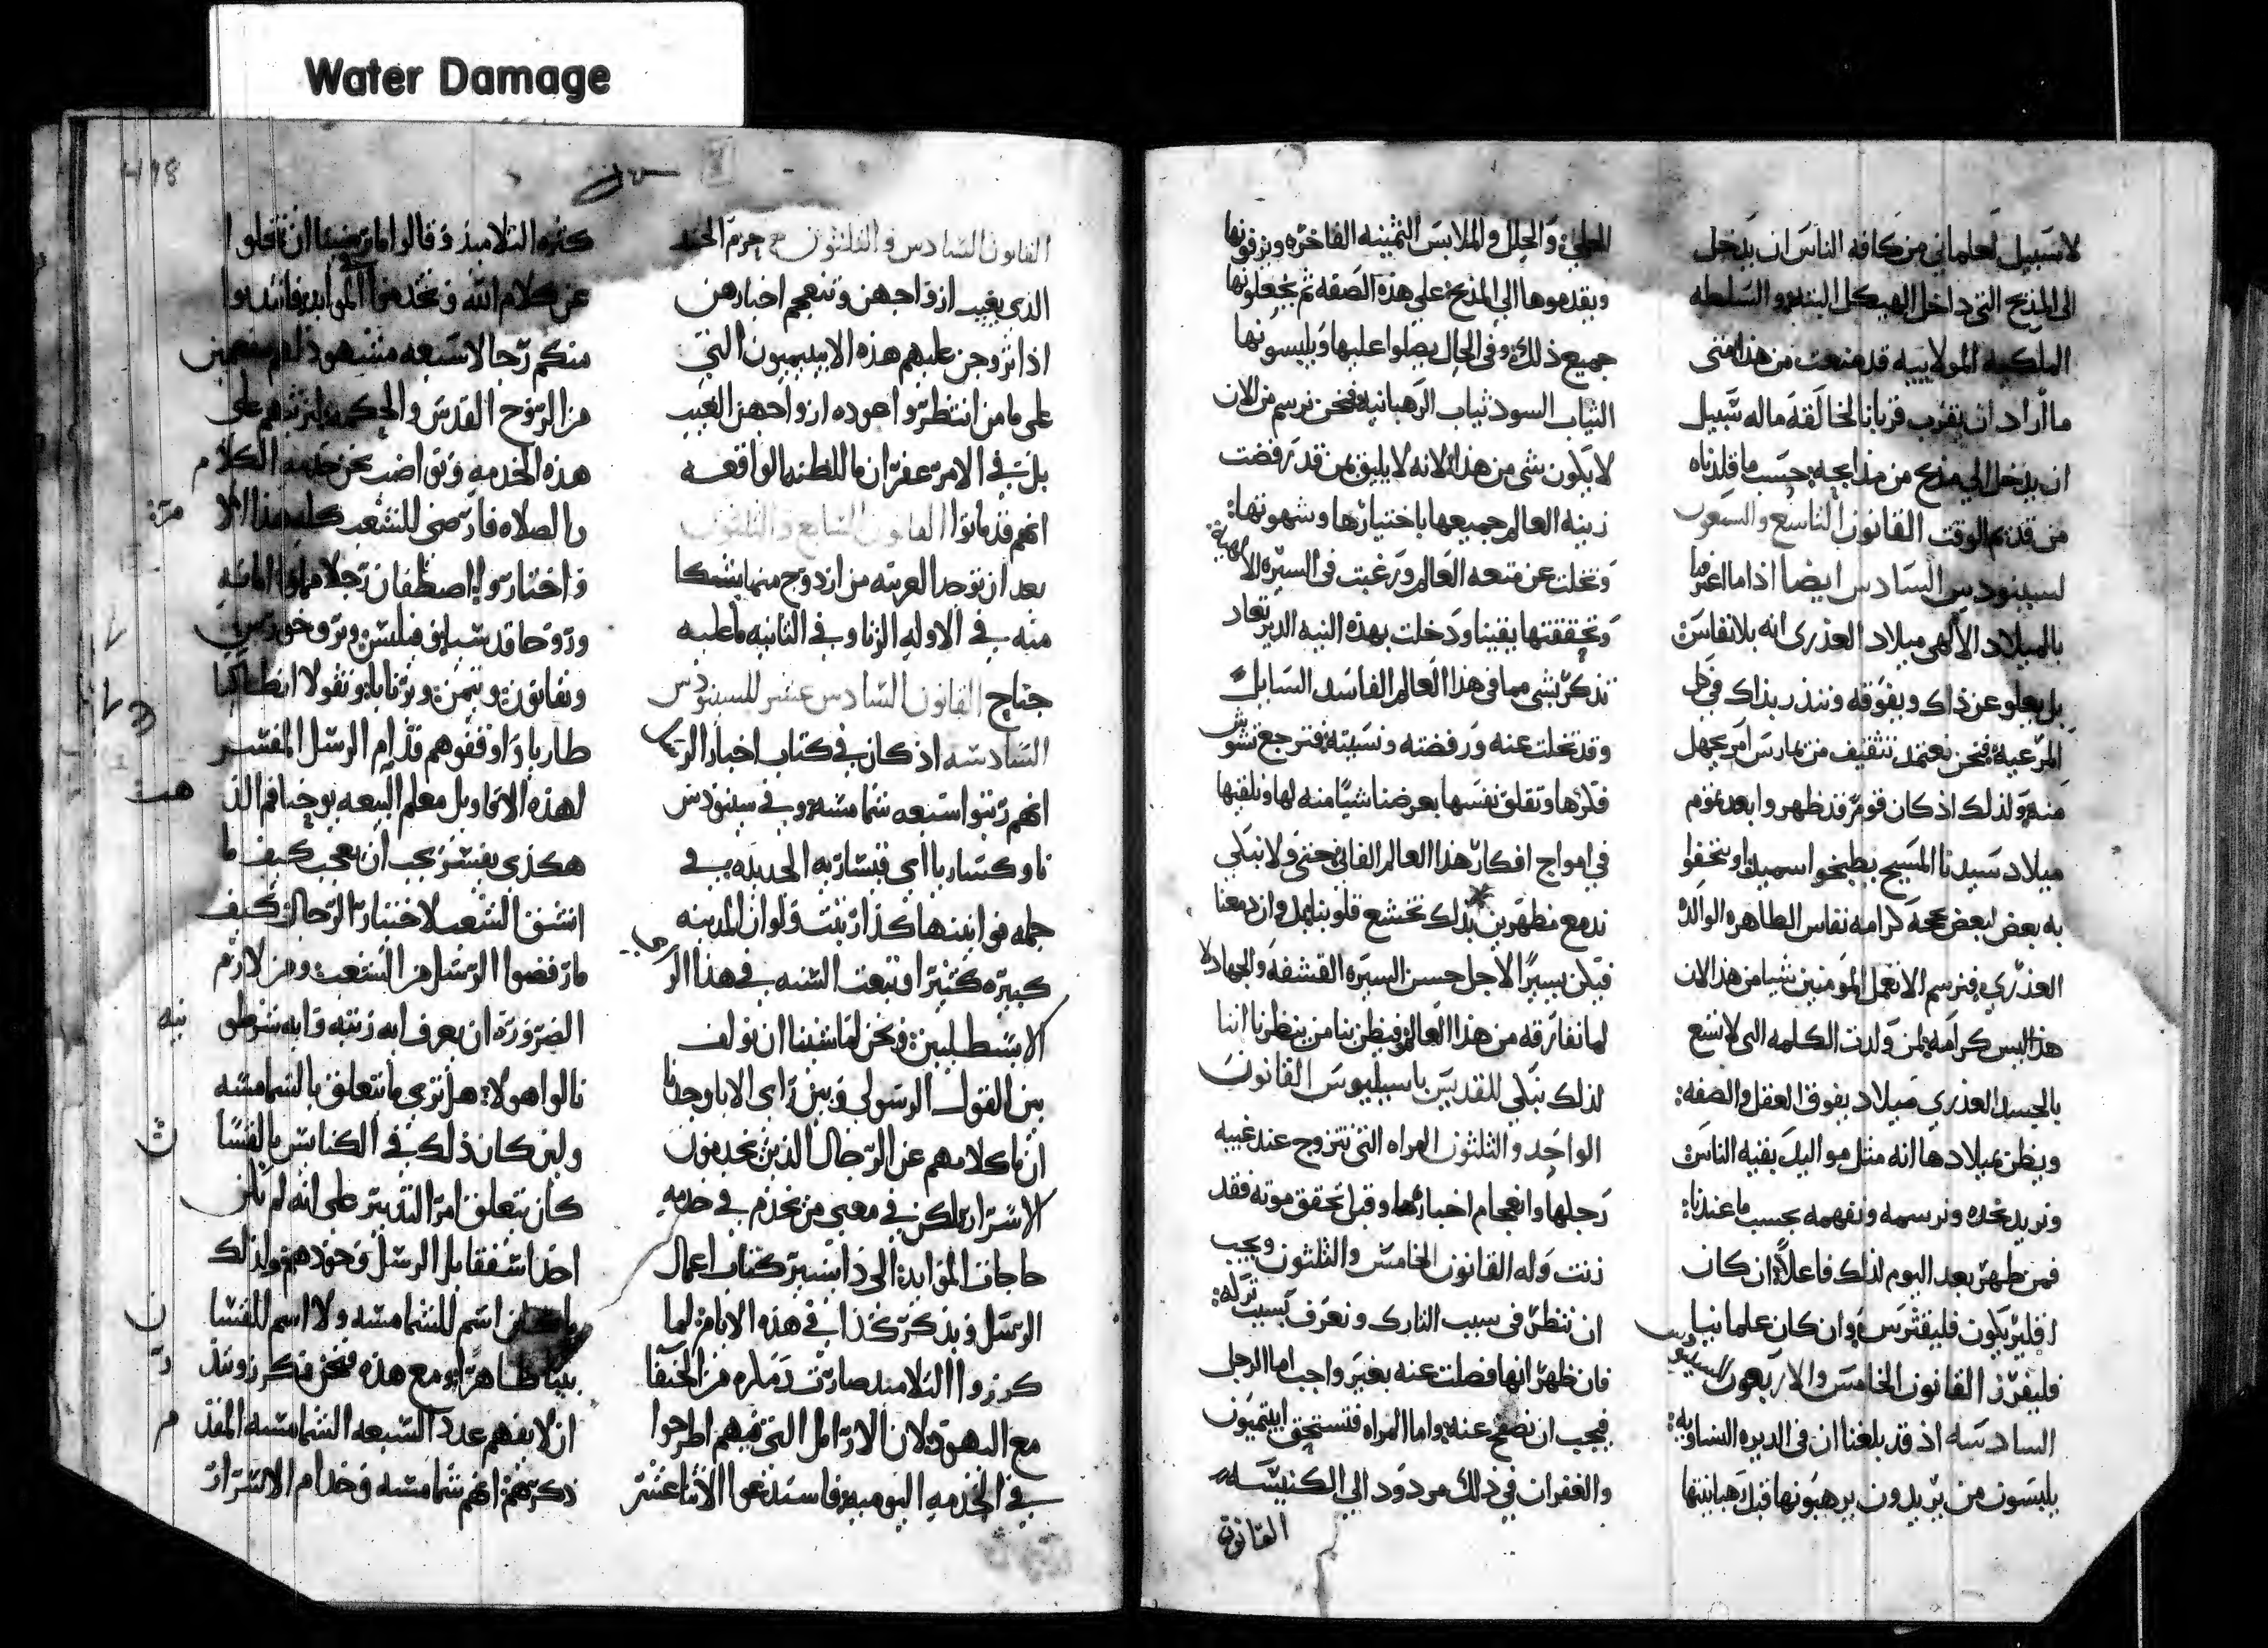 Water Damage
لاسبيل لعلماني من كافه الناس ان يدخل
الى المذبح التي داخل الهيكل البته والسلطه
الملكيه المولاييه قد منعت من هذا متى
ما اراد ان يقرب قربانا لخالقه ماله سبيل
ان يدخل الي مذبح من مذابحه حسب ما قلدناه
من قديم الوقت القانون التاسع والسبعون
لسينودس السادس ايضا اذا ما اعترفنا
بالميلاد الالهى ميلاد العذرى انه بلا نفاس
بل يعلو عن ذاك ويفوقه وننذر بذاك في كل
المرعيه فنحن نعتمد تثقيف من يمارس امر بجهل
منه ولذلك اذ كان قوم قد ظهروا بعد يوم
ميلاد سيدنا المسيح يطبخوا سميذا ويتحفوا
به بعض لبعض بحجة كرامه نفاس الطاهره الوالده
العذري فنرسم الا تعمل المومنين شيا من هذا لان
هذا ليس كرامه لمن ولدت الكلمه التي لا تسع
بالجسد العذري ميلاد يفوق العقل والصفه:
ويظن بميلادها انه مثل مواليد بقيه الناس
ونريد نحده ونرسمه ونفهمه بحسب ما عندنا:
فمن ظهر بعد اليوم لذلك فاعلا ان كان
اقليريكون فليقترس وان كان علمانيا
فليفرز القانون الخامس والاربعون للسينودس
السادسه اذ قد بلغنا ان في الديره النساويه:
يلبسون من يريدون يرهبونها قبل رهبانيتها
الحلي والحلل والملابس الثمينه الفاخره ويزفونها
ويقدموها الي المذبح علي هذه الصفه ثم يخلعونها
جميع ذلك وفي الحال يصلوا عليها ويلبسونها
الثياب السود ثياب الرهبانيه فنحن نرسم من الان
لا يكون شي من هذا لانه لا يليق بمن قد رفضت
زينه العالم جميعها باختيارها وشهوتها:
وتخلت عن متعه العالم ورغبت في السيره الالهيه
وتحققتها يقينا ودخلت بهذه النيه الدير تعاد
تذكر بشي مما في هذا العالم الفاسد السايل
وقد تخلت عنه ورفضته ونسيته فترجع تشوش
فكرها وتقلق نفسها بعرضنا شيا منه لها ونلقيها
في امواج افكار هذا العالم الفاني حتى ولا نبكي
ندمع مطهرين بذلك تخشع قلوبنا بل وان دمعنا
فيكن يسيرا لاجل حسن السيره القشفه والجهاد لا
لما نفارقه من هذا العالم فيظن بنا من ينظرنا اننا
لذلك نبكي للقديس باسيليوس القانون
الواحد والثلثون المراه التي تتزوج عند غيبه
رجلها وانعجام اخبارها وقبل تحقق موته فقد
زنت وله القانون الخامس والثلثون ويجب
ان ننظر في سبب التارك ونعرف بسبب تركه:
فان ظهر انها فصلت عنه بغير واجب اما الرجل
فيجب ان نصفح عنه واما المراه فتستحق ايبتميون
والغفران في ذلك مردود الي الكنيسه
القانون
القانون السادس والثلثون حرم الجند
الذي يغيب ازواجهن وتنعجم اخبارهن
اذا تزوجن عليهم هذه الايبتيميون التي
على ما من انتظروا عوده ازواجهن الغيب
بل في الامر غفران ما للظنه الواقعه
انهم قد ماتوا القانون السابع والثلثون
بعد ان توحد الغريبه من ازدوج منهما بشكا
منه في الاوله الزنا وفي الثانيه ما عليه
جناح القانون السادس عشر للسينودس
السادسه اذ كان في كتاب اخبار الرسل
انهم رتبوا سبعه شمامسه وفي سينودس
ناوكساريا اي قيساريه الجديده في
جمله قوانينها كذا رتبت ولو ان المدينه
كبيره كثيرا وتبعت السنه في هذا
الابسطليين ونحن لما شينا ان نولف
بين القول الرسولي وبين راي الابا وجدنا
ان كلامهم عن الرجال الذين يخدمون
الاسرار لكن في معني من يخدم في خدمه
حاجات الموايد الى ذا يشير كتاب اعمال
الرسل ويذكر كذا في هذه الايام لما
كرزوا التلاميذ صارت دمدمه من الحنفا
مع اليهود لان الارامل التي فيهم اطرحوا
في الخدمه اليوميه فاستدعي الاثنا عشر
كثره التلاميذ وقالوا ما يرضينا ان نخلوا
عن كلام الله ونخدم الموايد فانتدبوا
منكم رجالا سبعه مشهود لهم مفعمين
من الروح القدس والحكمه لنرتبهم على
هذه الخدمه ونواضب نحن خدمه الكلام
والصلاه فارضى للشعب كله هذا
واختاروا اصطفان رجلا مملوا امانه
وروحا قدسيا وفيلبس وبروخورس
ونقانور وتيمن وبرنابا ونقولا انطاكيا
طاريا واوقفوهم قدام الرسل المفسر
لهذه الاقاويل معلم البيعه يوحنا فم الذهب
هكذي يفسر يجب ان نعجب كيف ما
انشق الشعب لاختيار الرجال كيف
ما رفضوا الرسل من الشعب ومن لازم
الضروره ان يعرف ايه رتبه وايه شرطونيه
نالوا هولا هل تري ما تتعلق بالشمامسه
ولين كان ذلك في الكنايس بالقسا
كان يتعلق امر التدبير على انه لم يكن
احدا اسقفا بل الرسل وحودهم ولذلك
اسم للشمامسه ولا اسم للقسا
بينا ظاهرا ومع هذه فنحن نكرز
ان لا يفهم عدد السبعه الشمامسه المقدم
ذكرهم انهم شمامسه وخدام الاسرار